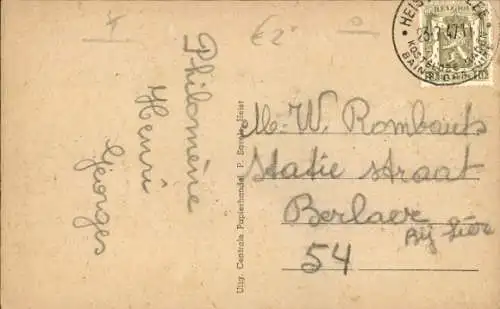 €2
Philomène
Henri
Georges
Uitg. Centrale Papierhandel P. Heist
BELGIE
KOSTELOOZE
BAINS
M. W. Rombauts
Statie straat
Berlaer
Bij Lier
54